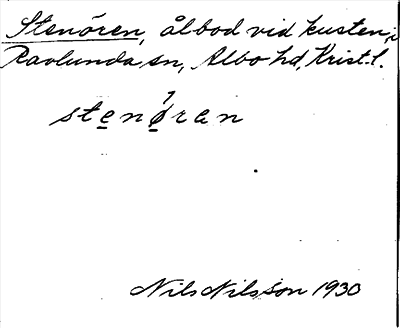 Stenören, ålbod vid kusten, i
Ravlunda sn, Albo hd, Krist. l.
stenøran
Nils Nilsson 1930